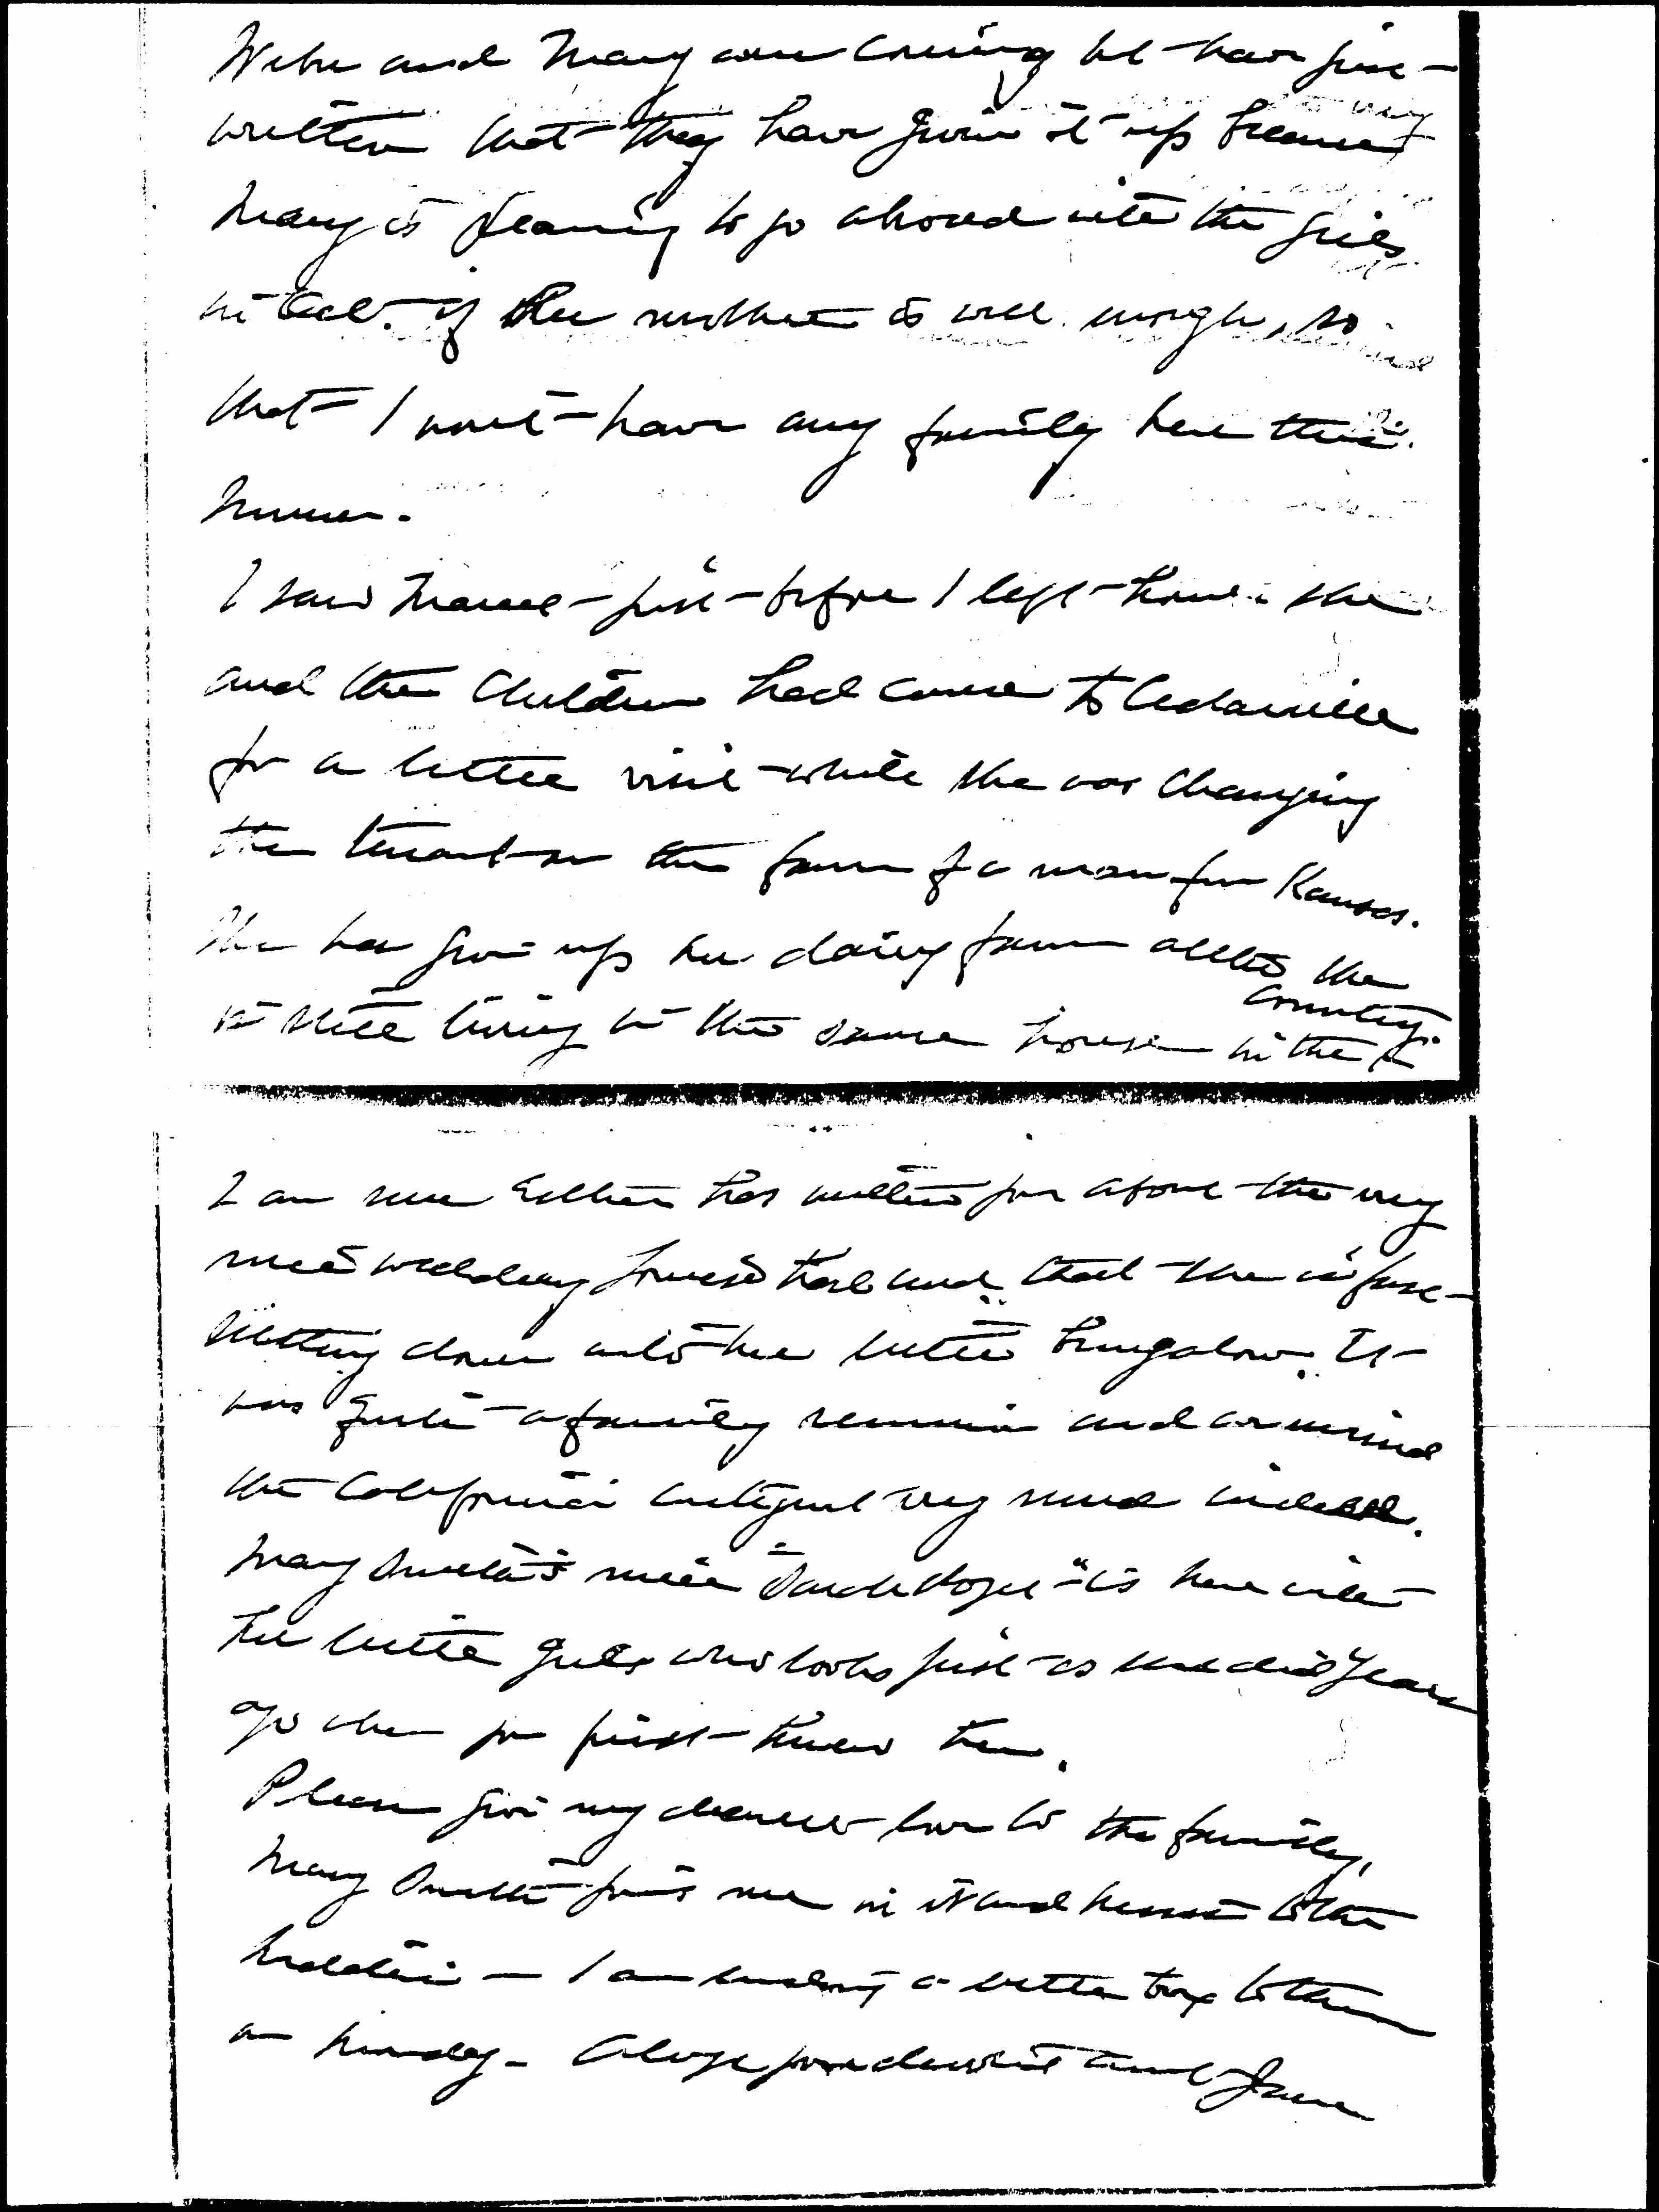 Weber and Mary were coming but have just
written that they have given it up because
Mary is planning to go abroad with the girls
in Oct. if her mother is well enough, so
that I won't have any family here this
summer.
I saw Marcet just before I left home. she
and the children had come to Cedarville
for a little visit while she was changing
the tenant on the farm for a man from Kansas.
She has given up her dairy farm altho she
is still living in the same house in the country.
I am sure Esther has written you about the very
nice wedding Louise had and that she is just
settling down into her little bungalow. It
was quite a family reunion and we missed
the California contingent very much indeed.
Mary Smith's niece "Sarah " is here with
her little girls who looks just as she did years
ago when you first knew her.
Please give my dearest love to the family,
Mary Smith joins me in it and to the
children — I am sending a little box to them
on Monday. Always your devoted aunt Jane